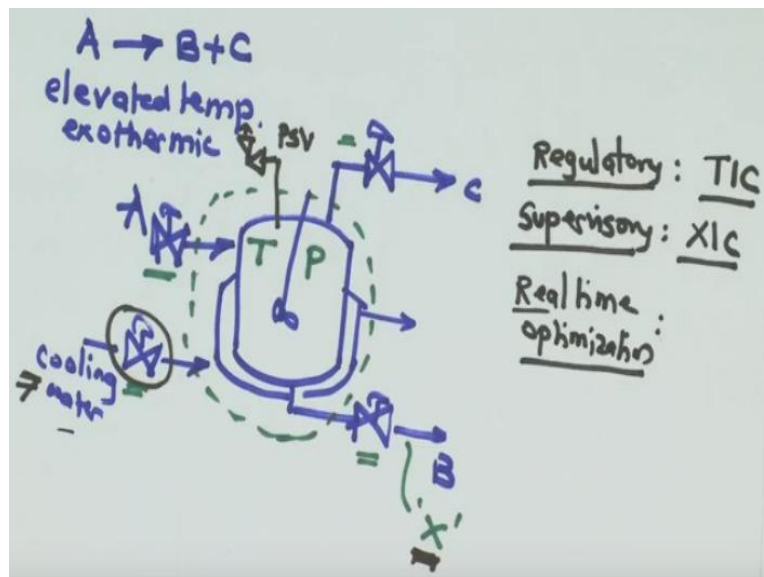 A → B+C
elevated temp.
exothermic
PSV
C
A
T P
cooling
water
B
'X'
Regulatory: TIC
Supervisory: XIC
Realtime
optimization: